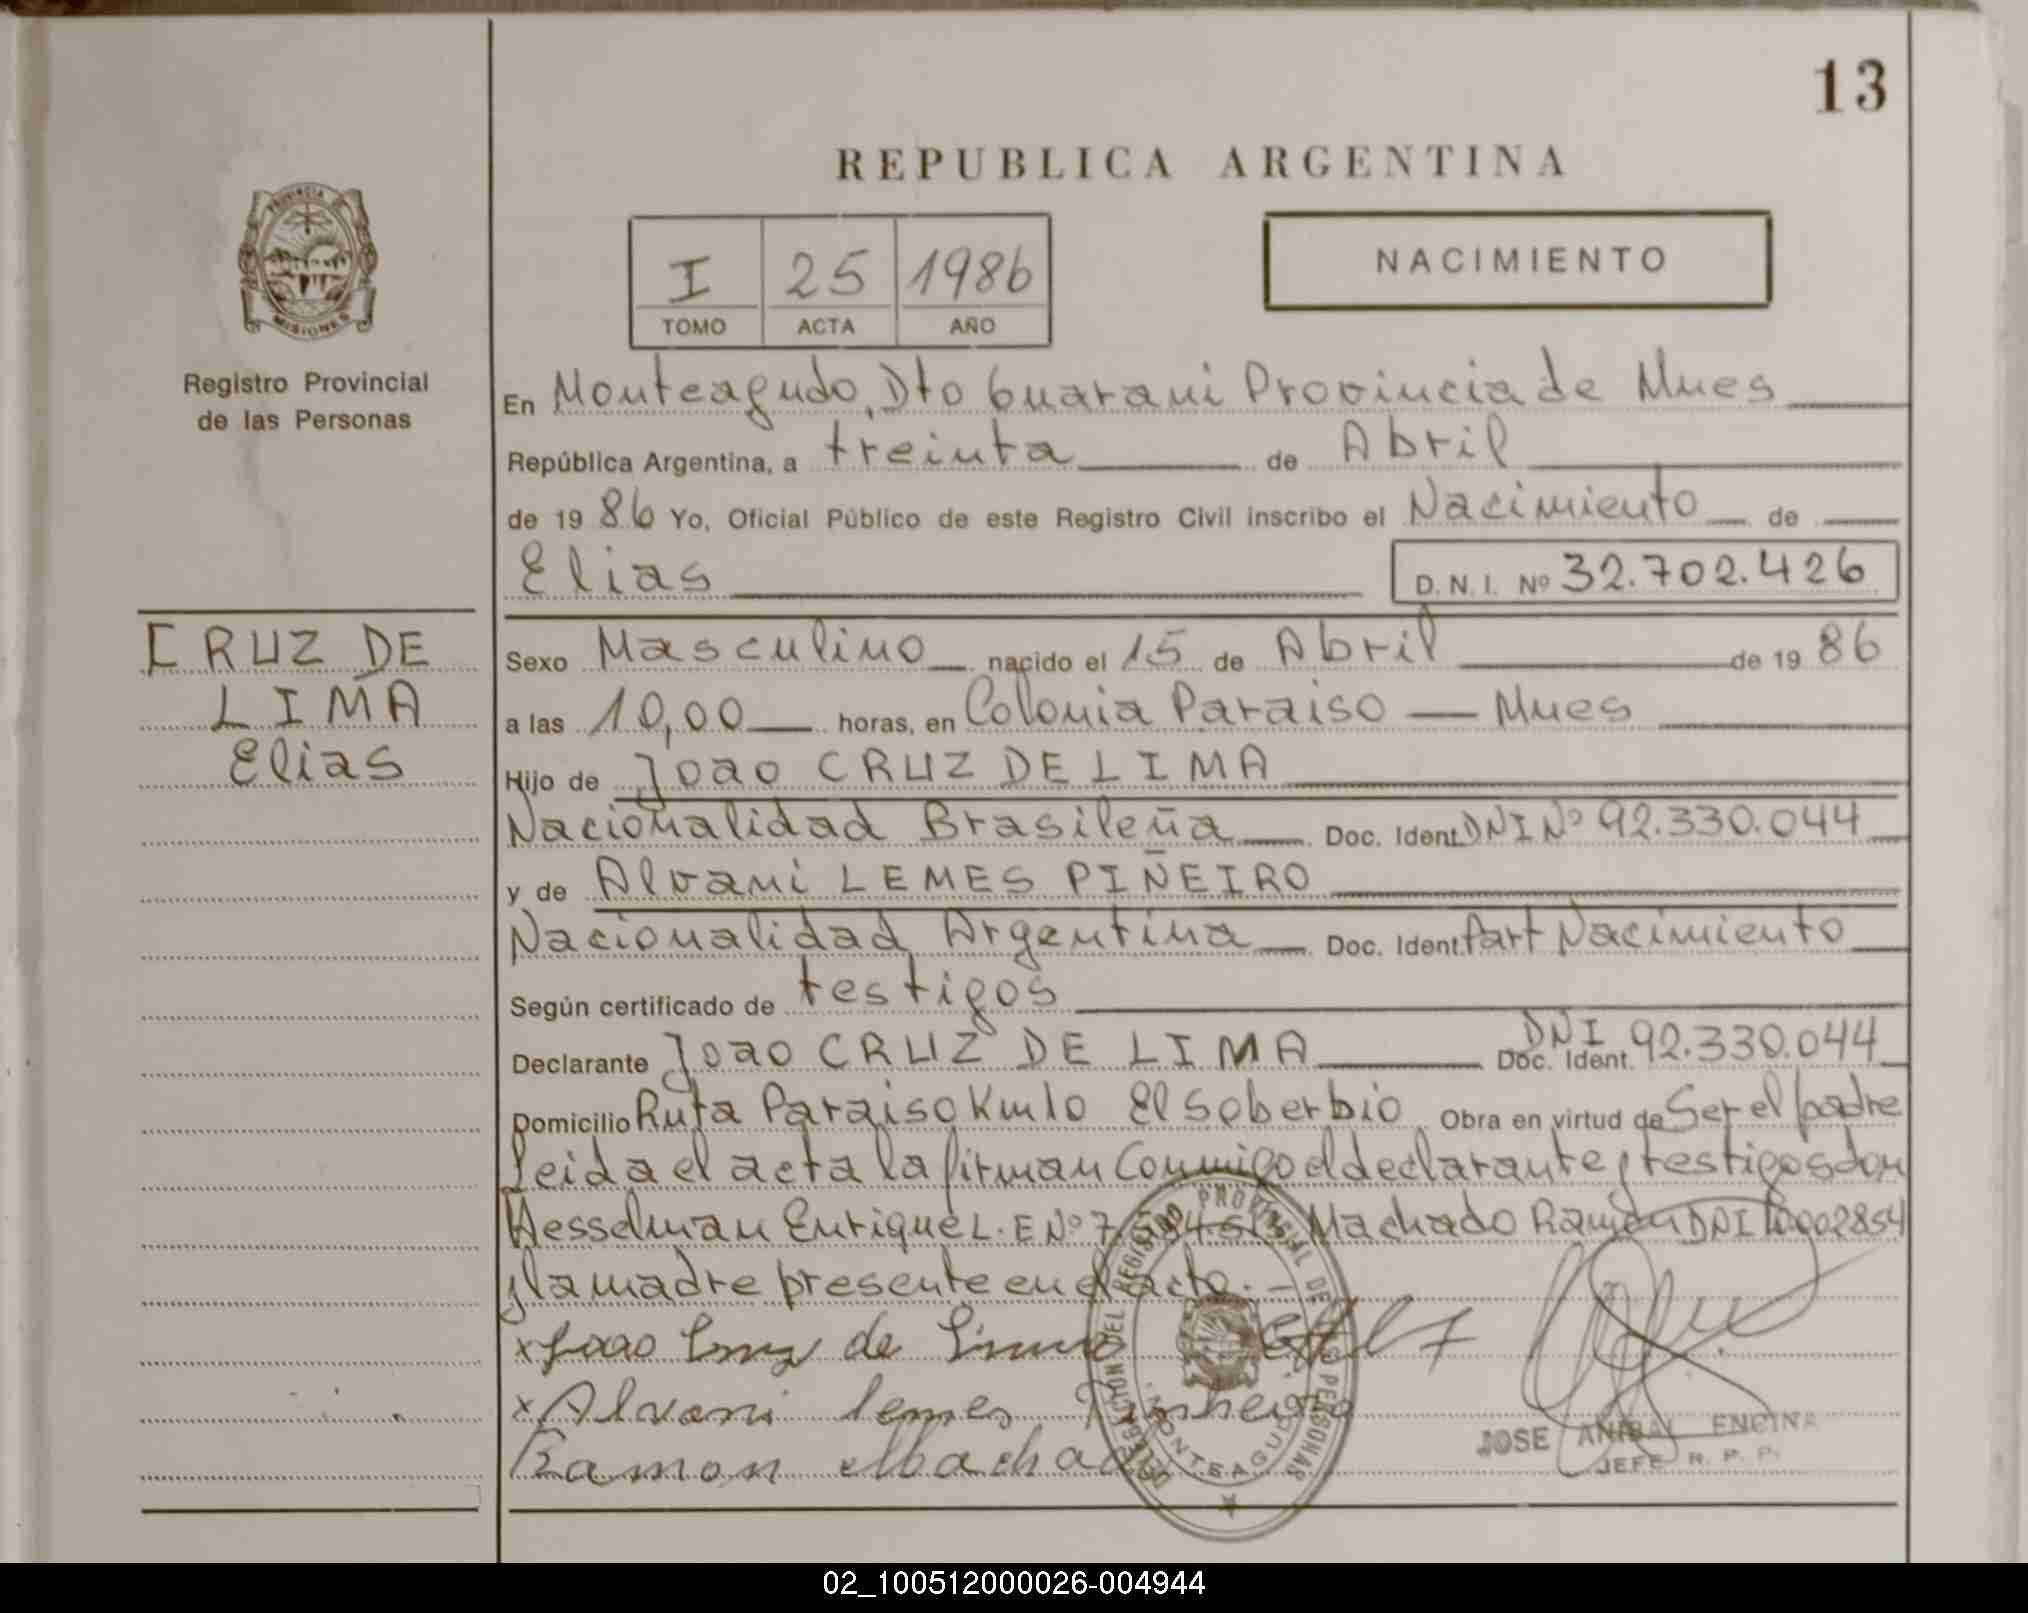 13
REPUBLICA ARGENTINA
PROVINCIA
MISIONES
Registro Provincial
de las Personas
I 25 1986
TOMO ACTA AÑO
NACIMIENTO
En Monteagudo, Dto Guarani Provincia de Mnes
República Argentina, a treinta de Abril
de 1986 Yo, Oficial Público de este Registro Civil inscribo el Nacimiento de
Elias D.N.I. Nº 32.702.426
CRUZ DE
LIMA
Elias
Sexo Masculino nacido el 15 de Abril de 1986
a las 10,00 horas, en Colonia Paraiso — Mnes
Hijo de Joao CRUZ DE LIMA
Nacionalidad Brasileña Doc. Ident. DNI Nº 92.330.044
y de Alvani LEMES PIÑEIRO
Nacionalidad Argentina Doc. Ident. Part Nacimiento
Según certificado de testigos
Declarante Joao CRUZ DE LIMA Doc. Ident. DNI 92.330.044
Domicilio Ruta Paraiso Km 10 El Soberbio Obra en virtud de Ser el padre
Leida el acta la firman Conmigo el declarante y testigos don
Hesselman Enrique L.E Nº Machado Ramón DNI 10.002854
y la madre presente en el acto.—
x Joao Cruz de Lima
x Alvani Lemes Pinheiro
Ramon Machado
DELEGACION DEL REGISTRO PROVINCIAL DE LAS PERSONAS
MONTEAGUDO
JOSE ANIBAL ENCINA
JEFE R. P. P.
02_100512000026-004944